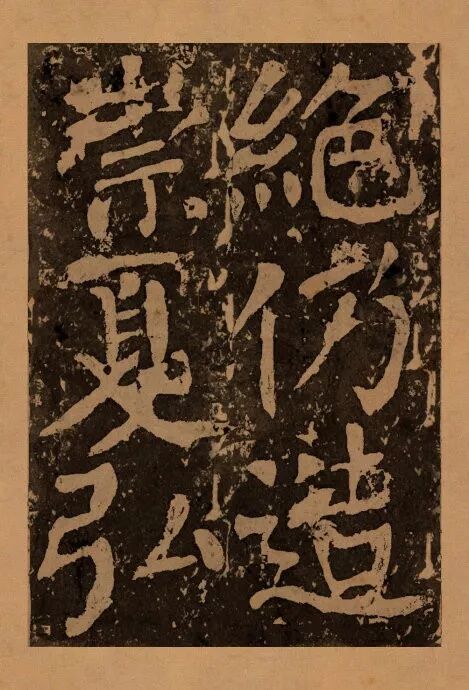 絕仍造
崇夏弘